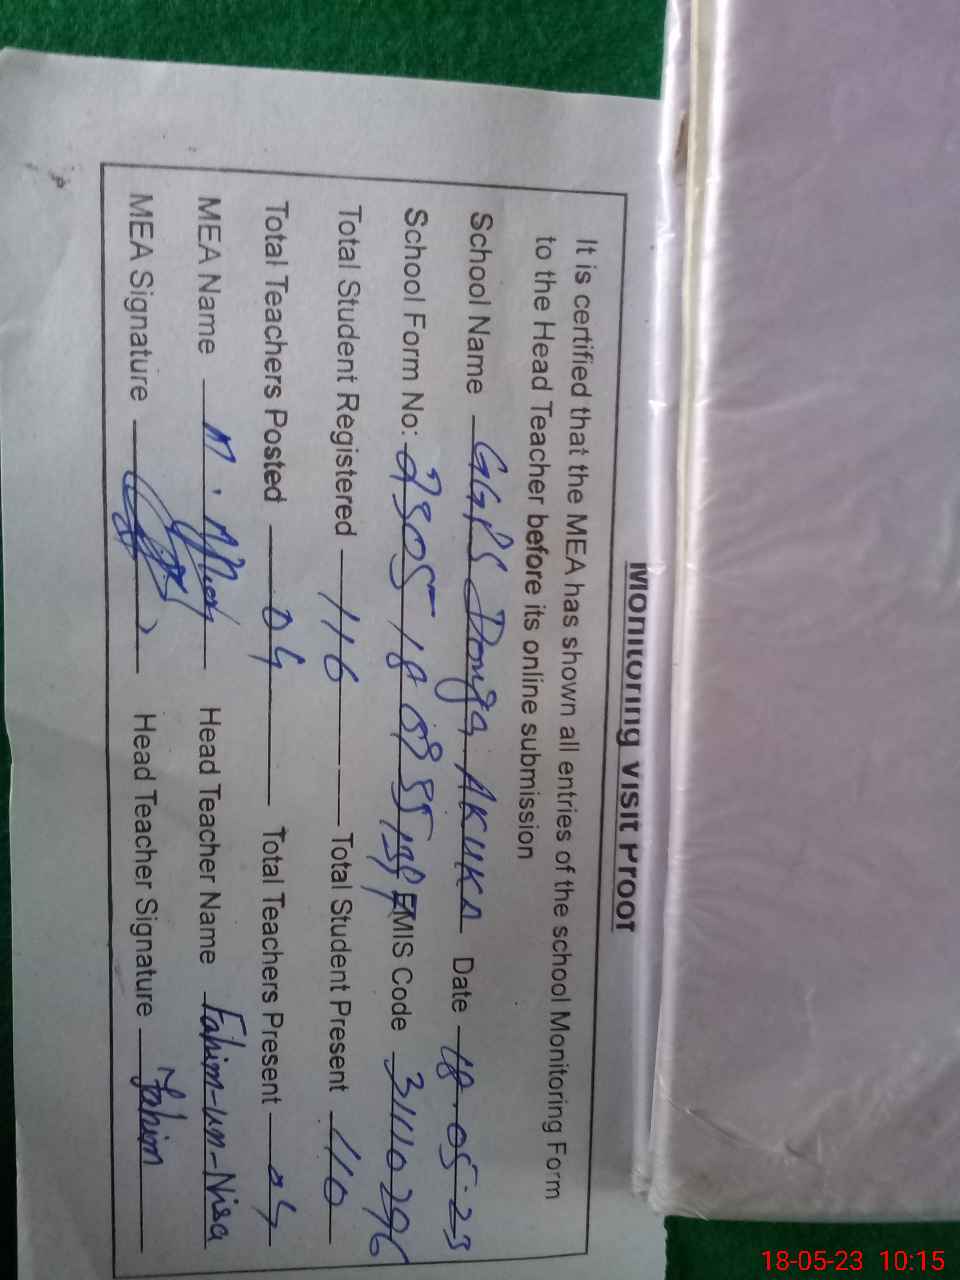 Monitoring Visit Proof
It is certified that the MEA has shown all entries of the school Monitoring Form
to the Head Teacher before its online submission
School Name GGPS Donga AKUKA Date 18-05-23
School Form No: EMIS Code 31110296
Total Student Registered 116 Total Student Present 110
Total Teachers Posted 04 Total Teachers Present 04
MEA Name M. Head Teacher Name Fahim-un-Nisa
MEA Signature Head Teacher Signature Fahim
18-05-23 10:15